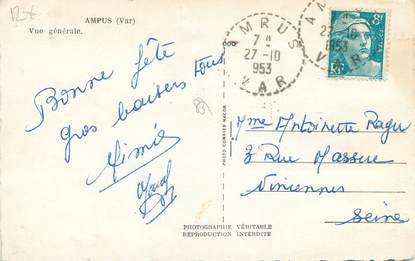 12€
AMPUS (Var)
Vue générale.
Bonne fête
gros baisers tous
Mimie
PHOTO COMBIER MACON
AMPUS
7H
27-10
1953
VAR
AMPUS
27-10
1953
VAR
8F
Mme Antoinette Ragu
3 Rue Massue
Vincennes
Seine
PHOTOGRAPHIE VÉRITABLE
REPRODUCTION INTERDITE